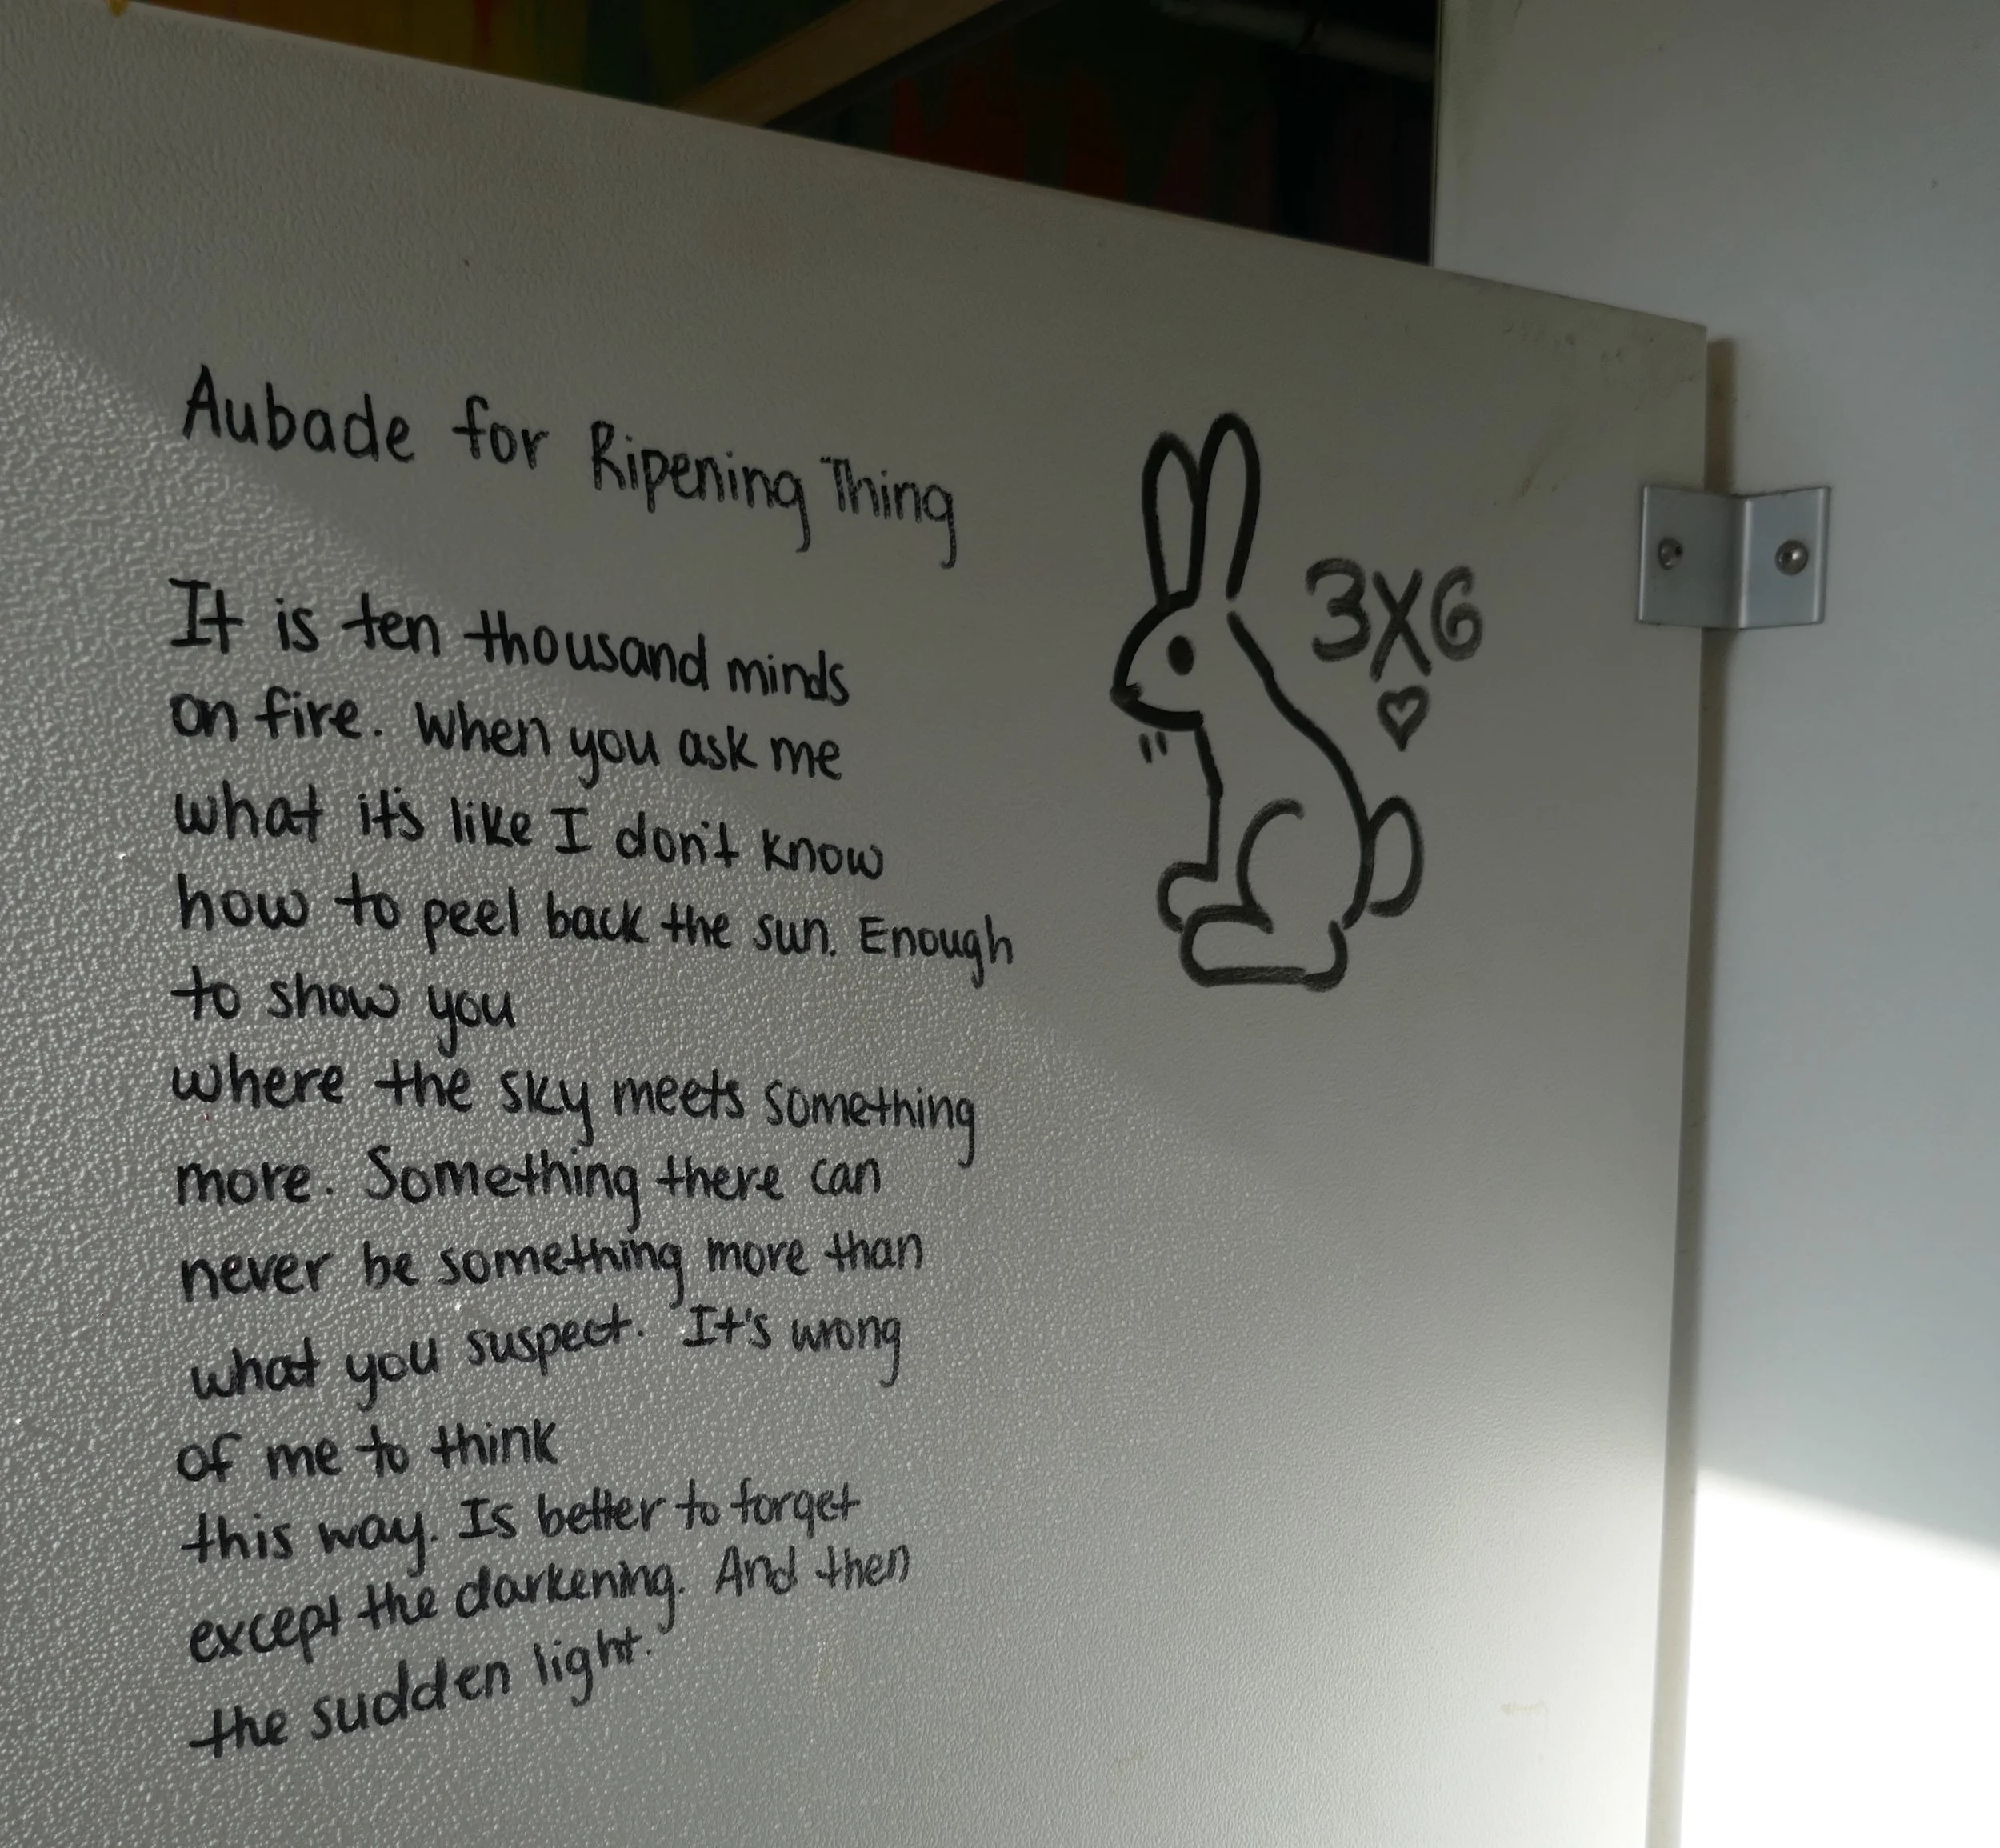 Aubade for Ripening Thing
It is ten thousand minds
on fire. When you ask me
what it's like I don't know
how to peel back the sun. Enough
to show you
where the sky meets something
more. Something there can
never be something more than
what you suspect. It's wrong
of me to think
this way. Is better to forget
except the darkening. And then
the sudden light.
3X6